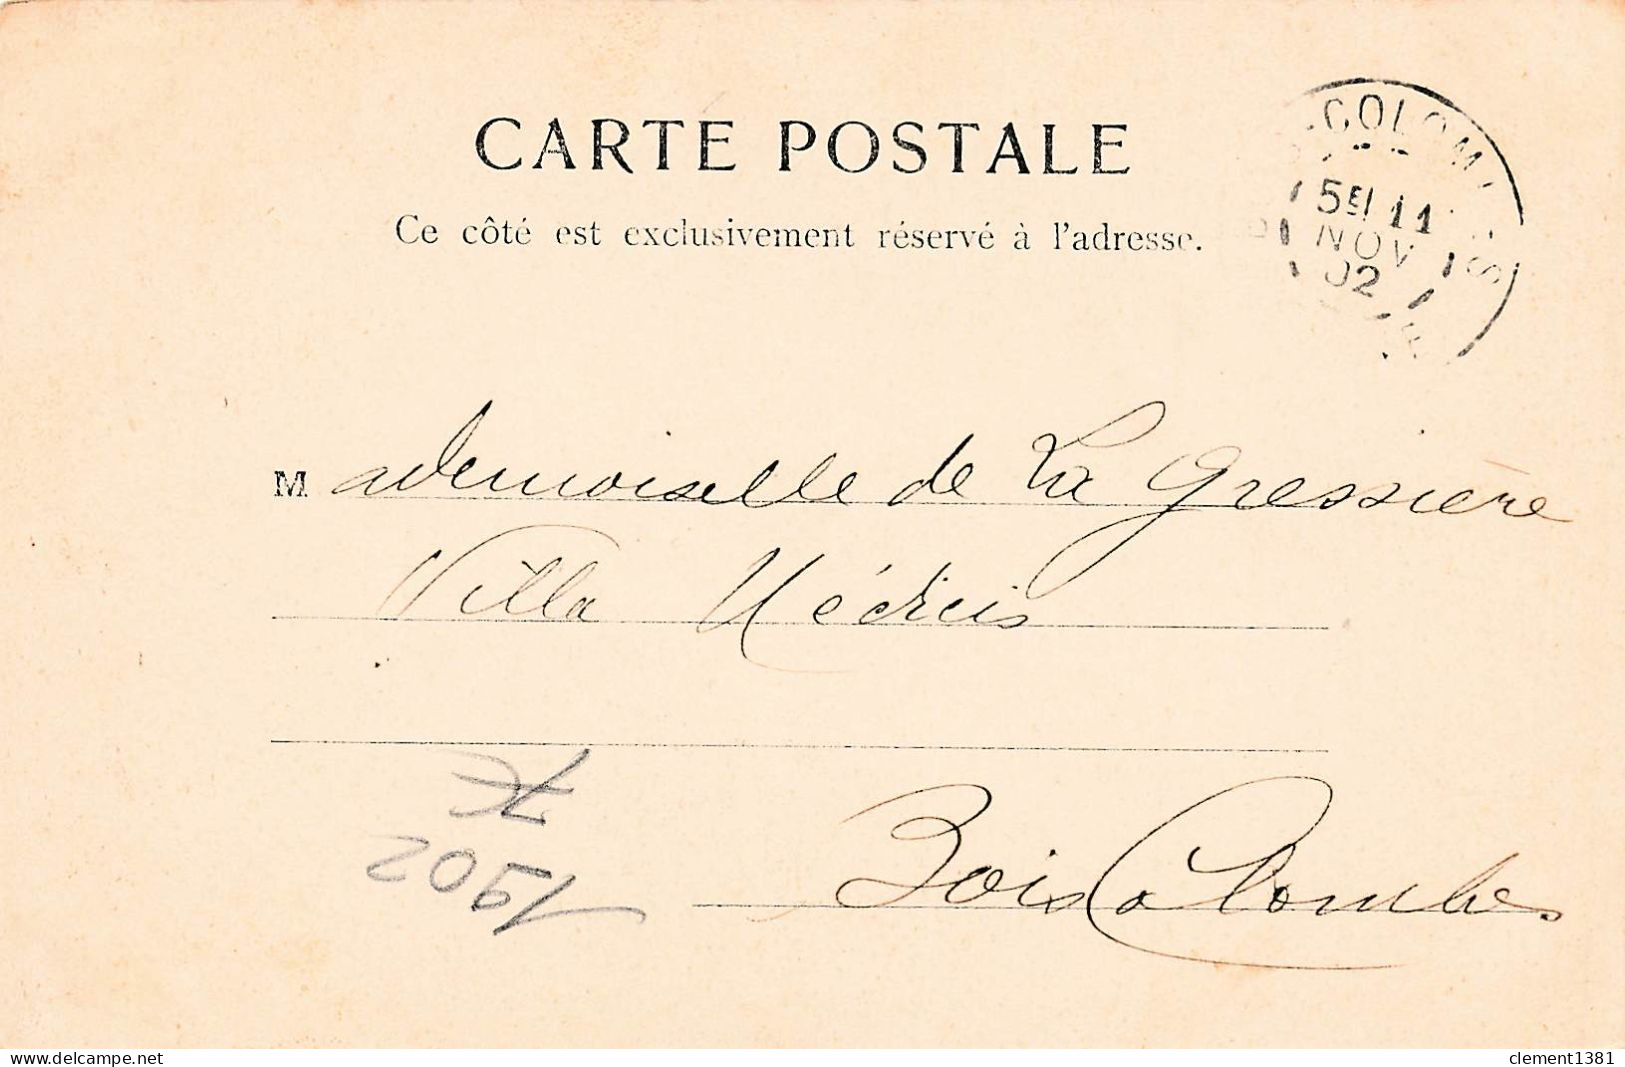 CARTE POSTALE
Ce côté est exclusivement réservé à l'adresse.
COLOMBES
5E 11
NOV
02
Mademoiselle de La Gressière
Villa Médicis
Bois Colombes
1902
www.delcampe.net
clement1381